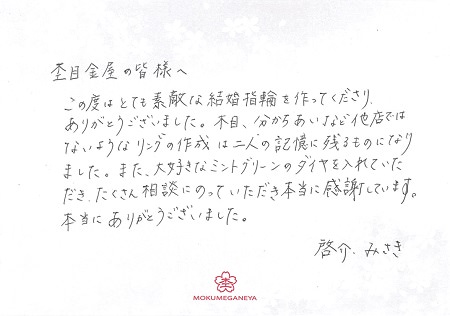 杢目金屋の皆様へ
この度はとても素敵な結婚指輪を作ってくださり、
ありがとうございました。木目、分からあいなど他店では
ないようなリングの作成は二人の記憶に残るものになり
ました。また、大好きなミントグリーンのダイヤを入れていた
だき、たくさん相談にのっていただき本当に感謝しています。
本当にありがとうございました。
啓介・みさき
杢
MOKUMEGANEYA